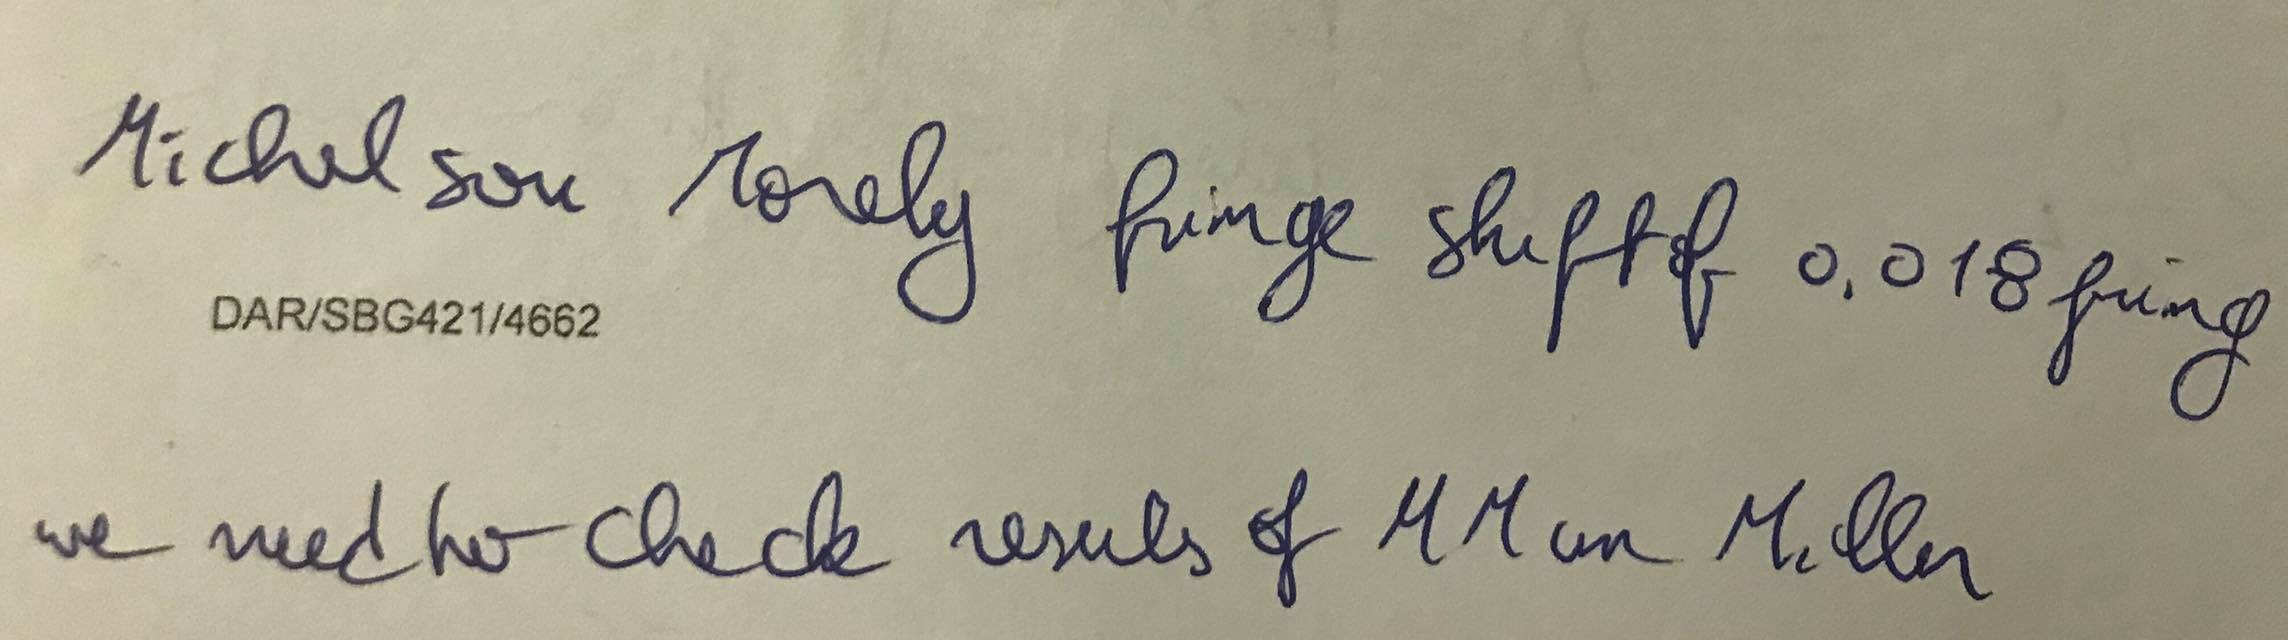 Michelson Morely fringe shift of 0.018 fring
DAR/SBG421/4662
we need to check results of MM an Miller